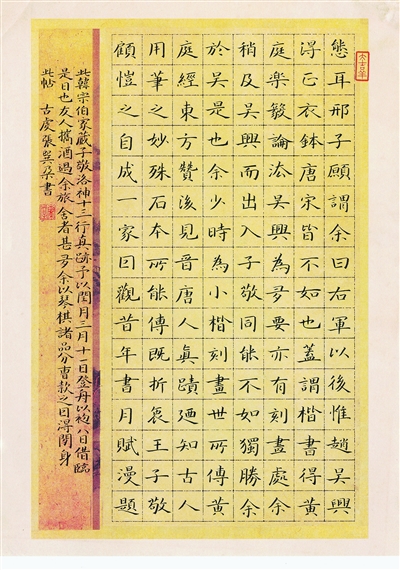 態耳邢子願謂余曰右軍以後惟趙吳興
得正衣鉢唐宋皆不如也蓋謂楷書得黃
庭樂毅論法吳興為多要亦有刻畫處余
稍及吳興而出入子敬同能不如獨勝余
於吳是也余少時為小楷刻畫世所傳黃
庭經東方贊後見晉唐人眞蹟廼知古人
用筆之妙殊石本所能傳既折衷王子敬
顧愷之自成一家因觀昔年書月賦漫題
此韓宗伯家藏子敬洛神十三行真跡予以閏月三月十一日登舟以初八日借臨
是日也友人攜酒過余旅舍者甚多余以琴棋諸品分曹款之因得閒身
此帖 古虞張書